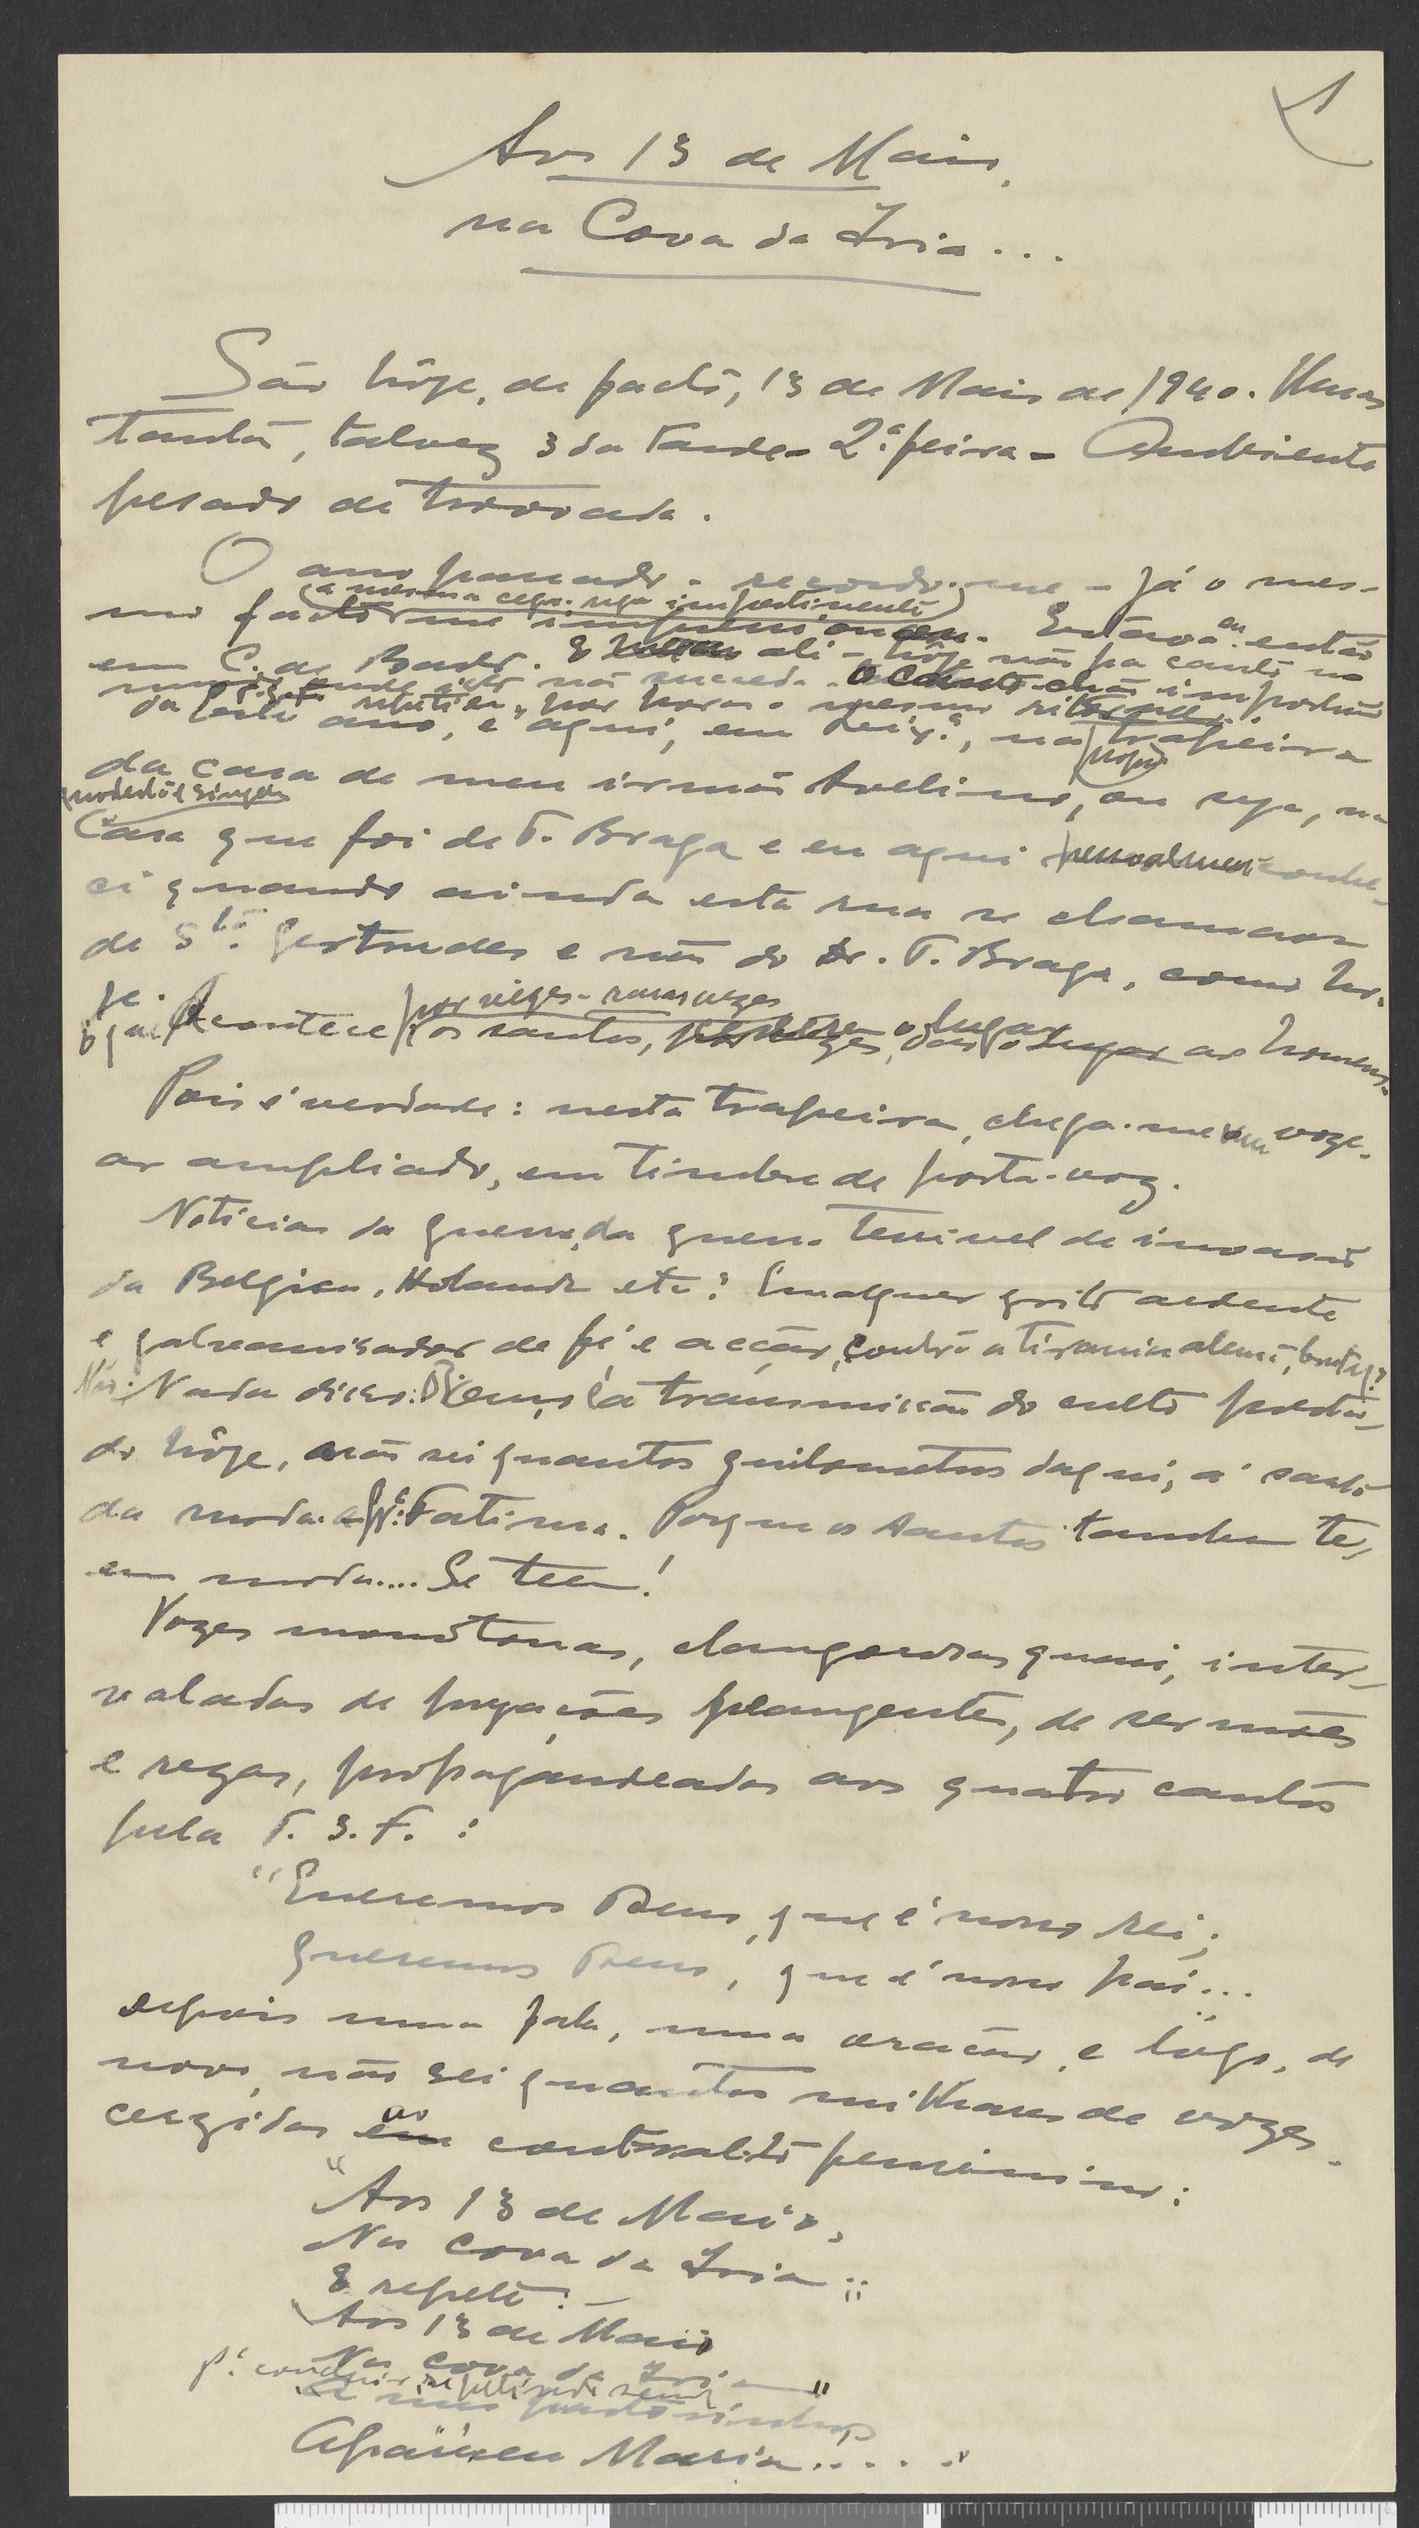 1
Aos 13 de Maio,
na Cova da Iria...
São hôje, de facto, 13 de Maio de 1940. Umas
tantas, talvez 3 da tarde - 2ª feira - Ambiente
pesado de trovoada.
O ano passado - recordo-me - já o mes-
(a mesma cega-rega impertinente)
mo facto me impressionou. Estava eu então
em C. de Basto. E ali - hôje não
repetiu, por horas o mesmo
este ano, é aqui, em Leix.ª, na trapeira
da casa de meu irmão Avelino, ou seja, na
modesta e singela
Casa que foi de T. Braga e eu aqui pessoalmente conhe-
ci quando ainda esta rua se chamava
de Stª. Gertrudes e não do Dr. T. Braga, como ho-
je.
por vezes - raras vezes
O que acontece: os santos, por vezes, dão o lugar aos homens.
Pois é verdade: nesta trapeira, chega-me um voze-
ar ampliado, em timbre de porta-voz.
Noticias da guerra, da guerra terrivel de invasão
da Belgica, Holanda etc? Qualquer grito ardente
e galvanisador de fé e acção, contra a tirania alemã, bruta?
Não: Nada disso: a transmissão do culto presta-
do hôje, não sei quantos quilometros daqui, á santa
da moda: a Fatima. Porque os Santos tambem te-
em moda.... Se teem!
Vozes monótonas, clangorosas quasi, inter-
valadas de prégações plangentes, de sermões
e rezas, propagandeadas aos quatro cantos
pela T. S. F. :
"Queremos Deus, que é nosso rei;
Queremos Deus, que é nosso pai...
depois uma fala, uma oração, e lógo, de
novo, não sei quantos milhares de vozes
cerzidas em ao contralto feminino:
"Aos 13 de Maio,
Na Cova da Iria;;
E repete: -
Aos 13 de Maio
Na Cova da Iria"
pª. concluir repetindo sempre
Apareceu Maria....."